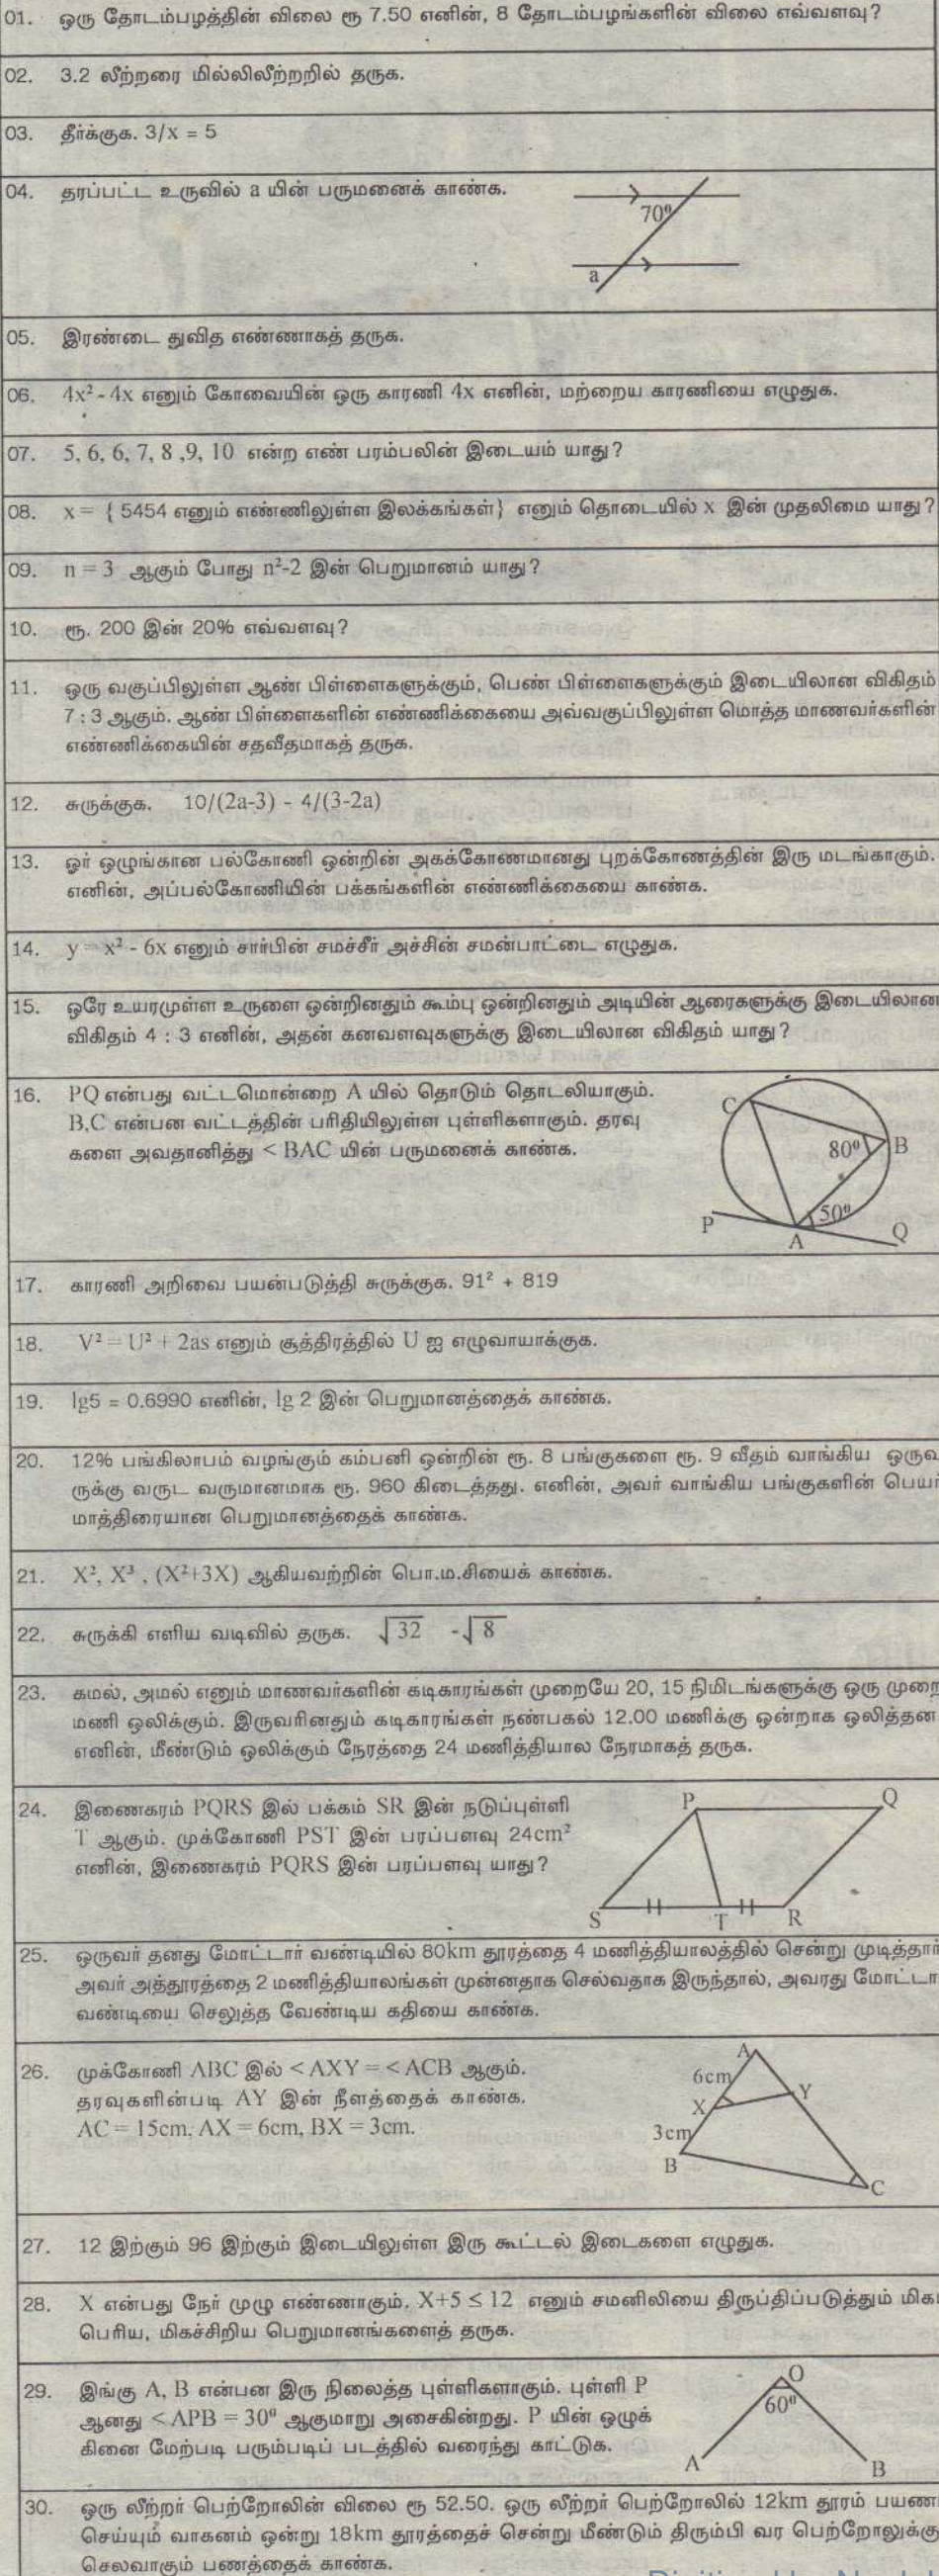 01. ஒரு தோடம்பழத்தின் விலை ரூ 7.50 எனின், 8 தோடம்பழங்களின் விலை எவ்வளவு?
02. 3.2 லீற்றரை மில்லிலீற்றறில் தருக.
03. தீர்க்குக. 3/x = 5
04. தரப்பட்ட உருவில் a யின் பருமனைக் காண்க.
70⁰
a
05. இரண்டை துவித எண்ணாகத் தருக.
06. 4x² - 4x எனும் கோவையின் ஒரு காரணி 4x எனின், மற்றைய காரணியை எழுதுக.
07. 5, 6, 6, 7, 8 ,9, 10 என்ற எண் பரம்பலின் இடையம் யாது?
08. x = { 5454 எனும் எண்ணிலுள்ள இலக்கங்கள்} எனும் தொடையில் x இன் முதலிமை யாது?
09. n = 3 ஆகும் போது n²-2 இன் பெறுமானம் யாது?
10. ரூ. 200 இன் 20% எவ்வளவு?
11. ஒரு வகுப்பிலுள்ள ஆண் பிள்ளைகளுக்கும், பெண் பிள்ளைகளுக்கும் இடையிலான விகிதம்
7 : 3 ஆகும். ஆண் பிள்ளைகளின் எண்ணிக்கையை அவ்வகுப்பிலுள்ள மொத்த மாணவர்களின்
எண்ணிக்கையின் சதவீதமாகத் தருக.
12. சுருக்குக. 10/(2a-3) - 4/(3-2a)
13. ஓர் ஒழுங்கான பல்கோணி ஒன்றின் அகக்கோணமானது புறக்கோணத்தின் இரு மடங்காகும்.
எனின், அப்பல்கோணியின் பக்கங்களின் எண்ணிக்கையை காண்க.
14. y = x² - 6x எனும் சார்பின் சமச்சீர் அச்சின் சமன்பாட்டை எழுதுக.
15. ஒரே உயரமுள்ள உருளை ஒன்றினதும் கூம்பு ஒன்றினதும் அடியின் ஆரைகளுக்கு இடையிலான
விகிதம் 4 : 3 எனின், அதன் கனவளவுகளுக்கு இடையிலான விகிதம் யாது?
16. PQ என்பது வட்டமொன்றை A யில் தொடும் தொடலியாகும்.
B,C என்பன வட்டத்தின் பரிதியிலுள்ள புள்ளிகளாகும். தரவு
களை அவதானித்து < BAC யின் பருமனைக் காண்க.
C
80⁰ B
50⁰
P A Q
17. காரணி அறிவை பயன்படுத்தி சுருக்குக. 91² + 819
18. V² = U² + 2as எனும் சூத்திரத்தில் U ஐ எழுவாயாக்குக.
19. lg5 = 0.6990 எனின், lg 2 இன் பெறுமானத்தைக் காண்க.
20. 12% பங்கிலாபம் வழங்கும் கம்பனி ஒன்றின் ரூ. 8 பங்குகளை ரூ. 9 வீதம் வாங்கிய ஒருவ
ருக்கு வருட வருமானமாக ரூ. 960 கிடைத்தது. எனின், அவர் வாங்கிய பங்குகளின் பெயர்
மாத்திரையான பெறுமானத்தைக் காண்க.
21. X², X³ , (X²+3X) ஆகியவற்றின் பொ.ம.சியைக் காண்க.
22. சுருக்கி எளிய வடிவில் தருக. √32 -√8
23. கமல், அமல் எனும் மாணவர்களின் கடிகாரங்கள் முறையே 20, 15 நிமிடங்களுக்கு ஒரு முறை
மணி ஒலிக்கும். இருவரினதும் கடிகாரங்கள் நண்பகல் 12.00 மணிக்கு ஒன்றாக ஒலித்தன
எனின், மீண்டும் ஒலிக்கும் நேரத்தை 24 மணித்தியால நேரமாகத் தருக.
24. இணைகரம் PQRS இல் பக்கம் SR இன் நடுப்புள்ளி
T ஆகும். முக்கோணி PST இன் பரப்பளவு 24cm²
எனின், இணைகரம் PQRS இன் பரப்பளவு யாது?
P Q
S T R
25. ஒருவர் தனது மோட்டார் வண்டியில் 80km தூரத்தை 4 மணித்தியாலத்தில் சென்று முடித்தார்
அவர் அத்தூரத்தை 2 மணித்தியாலங்கள் முன்னதாக செல்வதாக இருந்தால், அவரது மோட்டா
வண்டியை செலுத்த வேண்டிய கதியை காண்க.
26. முக்கோணி ABC இல் < AXY = < ACB ஆகும்.
தரவுகளின்படி AY இன் நீளத்தைக் காண்க.
AC = 15cm, AX = 6cm, BX = 3cm.
A
6cm
X Y
3cm
B
C
27. 12 இற்கும் 96 இற்கும் இடையிலுள்ள இரு கூட்டல் இடைகளை எழுதுக.
28. X என்பது நேர் முழு எண்ணாகும். X+5 ≤ 12 எனும் சமனிலியை திருப்திப்படுத்தும் மிக
பெரிய, மிகச்சிறிய பெறுமானங்களைத் தருக.
29. இங்கு A, B என்பன இரு நிலைத்த புள்ளிகளாகும். புள்ளி P
ஆனது < APB = 30⁰ ஆகுமாறு அசைகின்றது. P யின் ஒழுக்
கினை மேற்படி பரும்படிப் படத்தில் வரைந்து காட்டுக.
O
60⁰
A B
30. ஒரு லீற்றர் பெற்றோலின் விலை ரூ 52.50. ஒரு லீற்றர் பெற்றோலில் 12km தூரம் பயண
செய்யும் வாகனம் ஒன்று 18km தூரத்தைச் சென்று மீண்டும் திரும்பி வர பெற்றோலுக்கு
செலவாகும் பணத்தைக் காண்க.